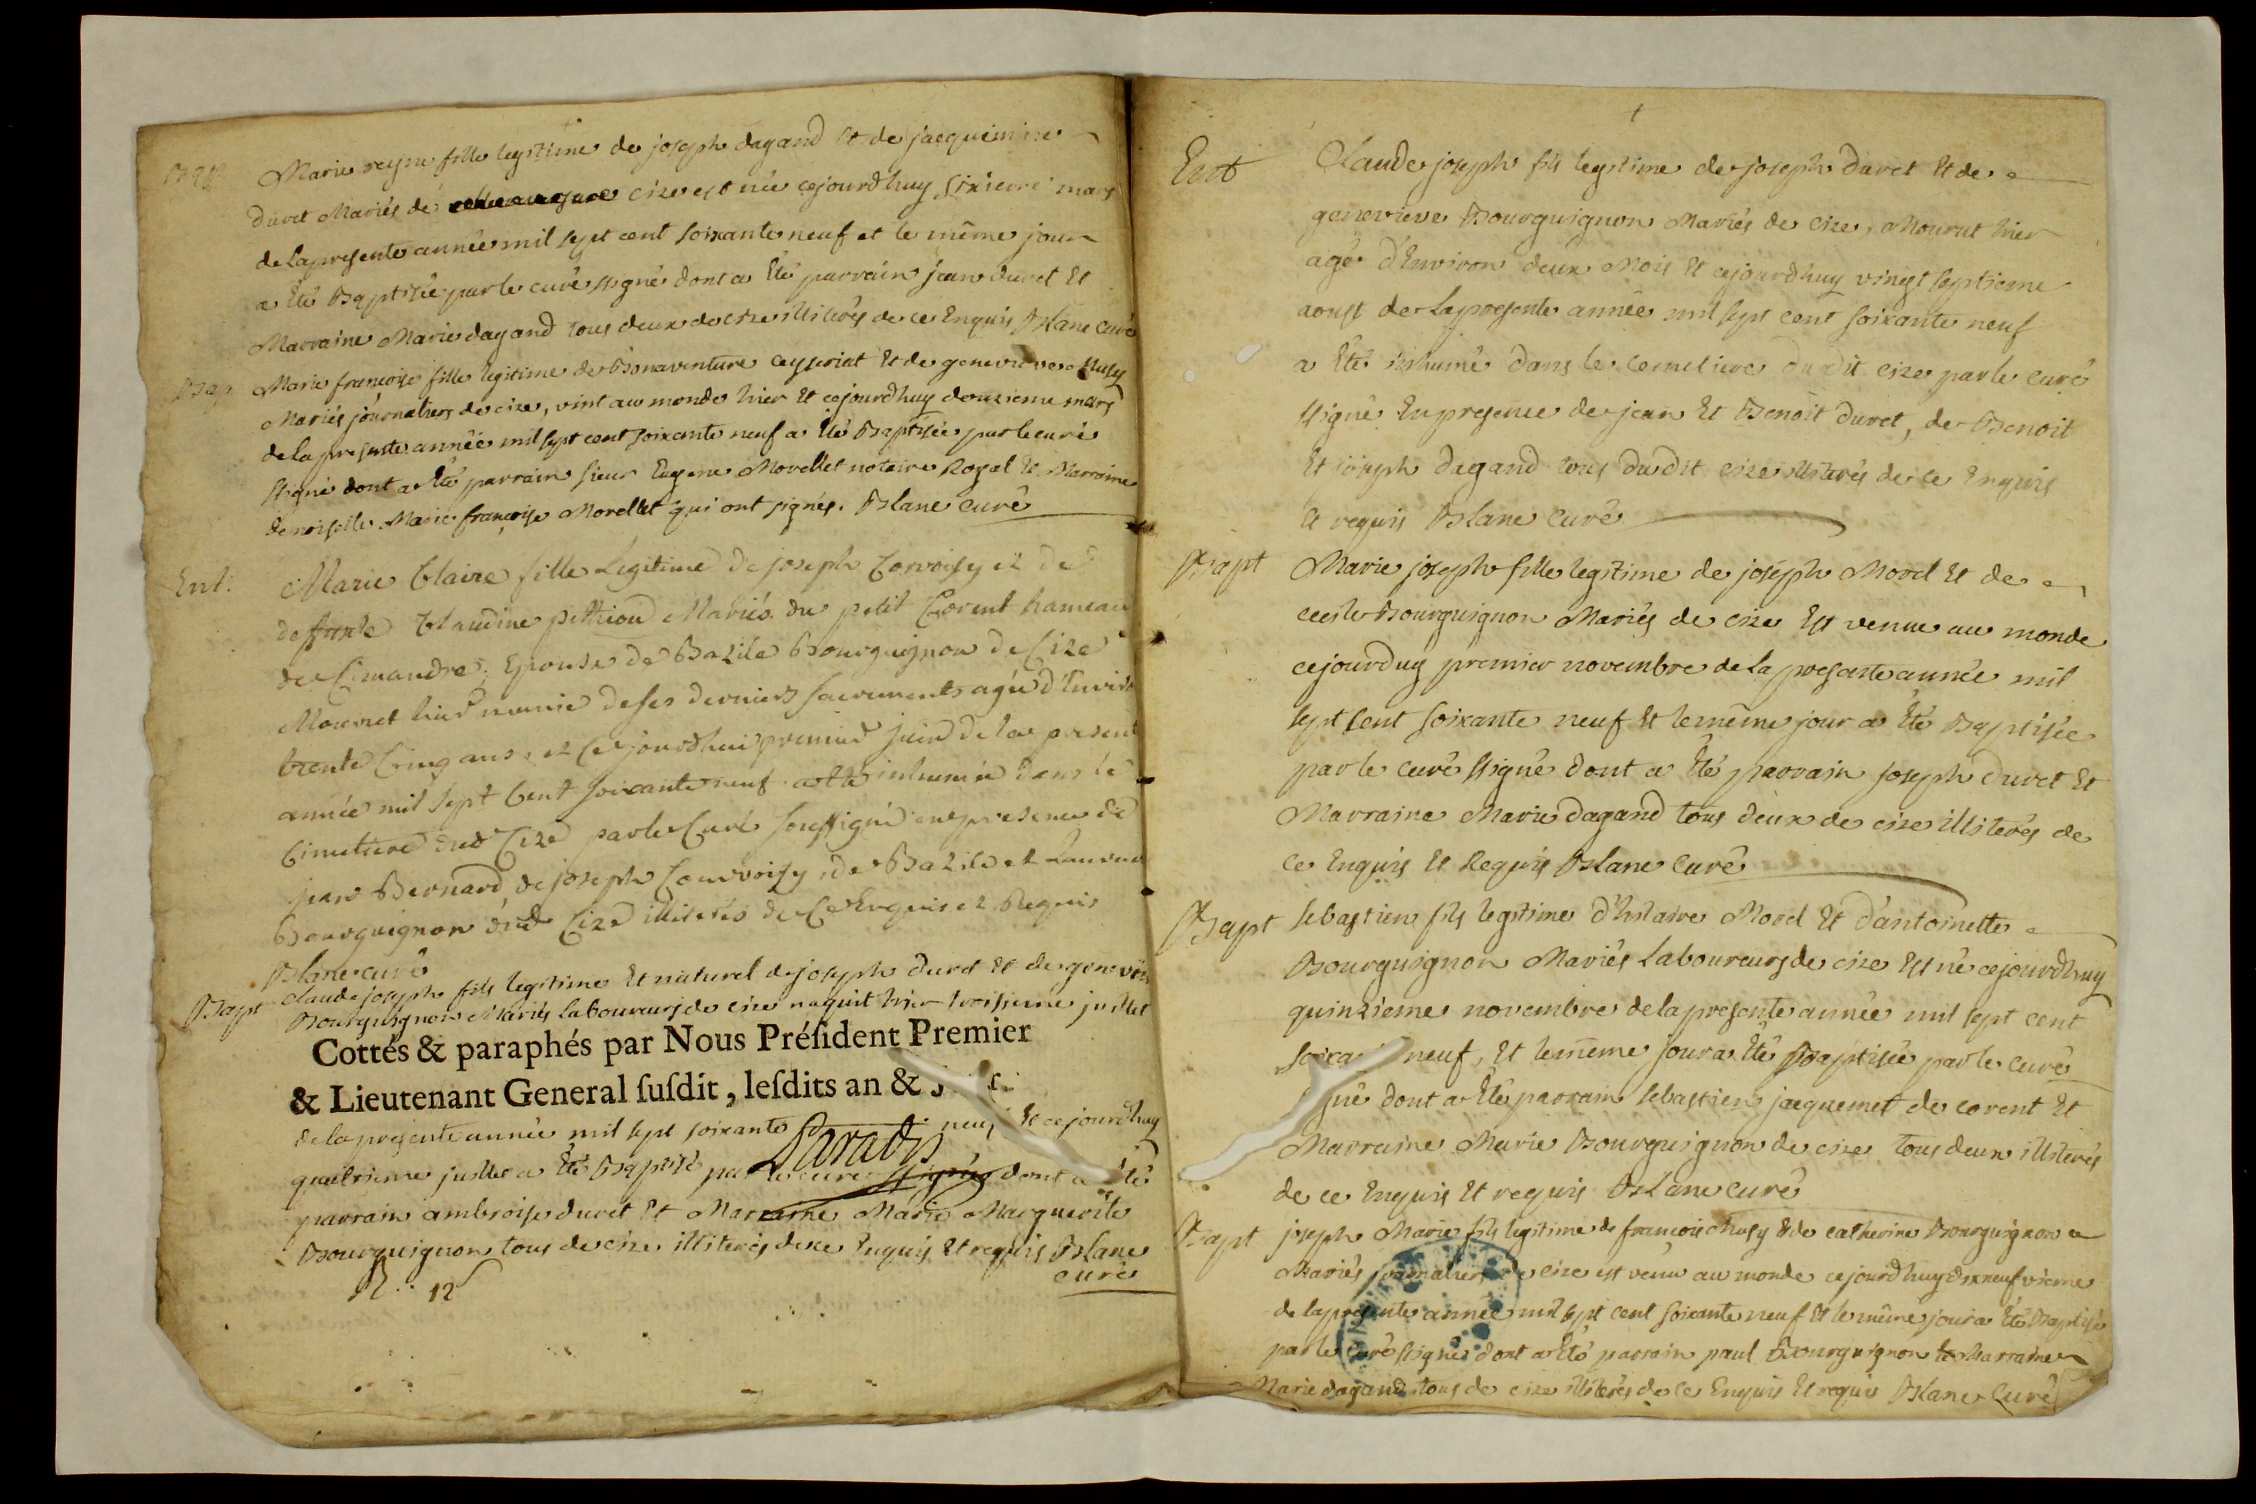 Bapt
Marie reyne fille legitime de joseph dagand Et de jacquemine
duret Mariés de cize est née cejourdhuy sixieme mars
de la presente année mil sept cent soixante neuf et le même jour
a Eté Baptisée par le curé ssigné dont a Eté parrain jean duret Et
Marraine Marie dagand tous deux de cize illiterés de ce Enquis Blanc curé
Bap
Marie françoise fille legitime de Bonaventure ceyseriat Et de genevieve
Mariés journaliers de cize, vint au monde hier Et cejourdhuy douzieme mars
de la presente année mil sept cent soixante neuf a Eté Baptisée par le curé
ssigné dont a Eté parrain sieur Eugene Morellet notaire Royal Et Marraine
demoiselle Marie françoise Morellet qui ont signés. Blanc curé
Ent.
Marie Claire fille Legitime de joseph Corvoisy et de
defunte Claudine pithiou Mariés du petit Corent hameau
de Cimandre; Epouse de Bazile Bourguignon de Cize
Mourut hier munie de ses derniers sacrements agée d'Environ
trente Cinq ans, et Cejourdhui premier juin de la present
année mil sept Cent soixante neuf a été inhumée dans le
Cimetiere dud Cize par le Curé soussigné en presence de
jean Bernard, de joseph Courvoisy, de Bazile et Laurent
Bourguignon dud Cize illiterés de Ce Enquis et Requis
Blanc curé
Bapt
Claude joseph fils legitime Et naturel de joseph duret Et de geneviev
Bourguignon Mariés Laboureurs de cize naquit hier troisieme juillet
Cottés & paraphés par Nous Préſident Premier
& Lieutenant General ſuſdit, leſdits an &
de la presente année mil sept soixante neuf Et cejourdhuy
Paradis
quatrieme juillet a Eté Baptisé par le curé ssigné dont a Eté
parrain ambroise duret Et Marraine Marie Marguerite
Bourguignon tous de cize illiterés de ce Enquis Et requis Blanc
curé
12
Ent
Claude joseph fils legitime de joseph duret Et de
genevieve Bourguignon Mariés de cize, Mourut hier
agé d'Environ deux Mois Et cejourdhuy vingt septieme
aoust de la presente année mil sept cent soixante neuf
a Eté inhumé dans le cemetiere dudit cize par le curé
ssigné En presence de jean Et Benoit duret, de Benoit
Et joseph dagand tous dudit cize illiterés de ce Enquis
Et requis Blanc curé
Bapt
Marie joseph fille legitime de joseph Morel Et de
cecile Bourguignon Mariés de cize Est venue au monde
cejourduy premier novembre de la presente année mil
sept Cent soixante neuf Et le même jour a Eté Baptisée
par le curé ssigné dont a Eté parrain joseph duret Et
Marraine Marie dagand tous deux de cize illiterés de
ce Enquis Et Requis Blanc curé
Bapt
sebastien fils legitime d'hilaire Morel Et d'antoinette
Bourguignon Mariés Laboureurs de cize Est né cejourdhuy
quinzieme novembre de la presente année mil sept cent
neuf, Et le même jour a Eté Baptisée par le curé
dont a Eté parrain sebastien jacquemet de corent Et
Marraine Marie Bourguignon de cize tous deux illiterés
de ce Enquis Et requis Blanc curé
Bapt
joseph Marie fils legitime de francois chusy Et de catherine Bourguignon
Mariés journaliers de cize est venu au monde cejourdhuy dixneufvieme
de la presente année mil sept cent soixante neuf Et le même jour a Eté Baptisé
par le curé ssigné dont a Eté parrain paul Bourguignon Et Marraine
Marie dagand tous de cize illiterés de ce Enquis Et requis Blanc Curé